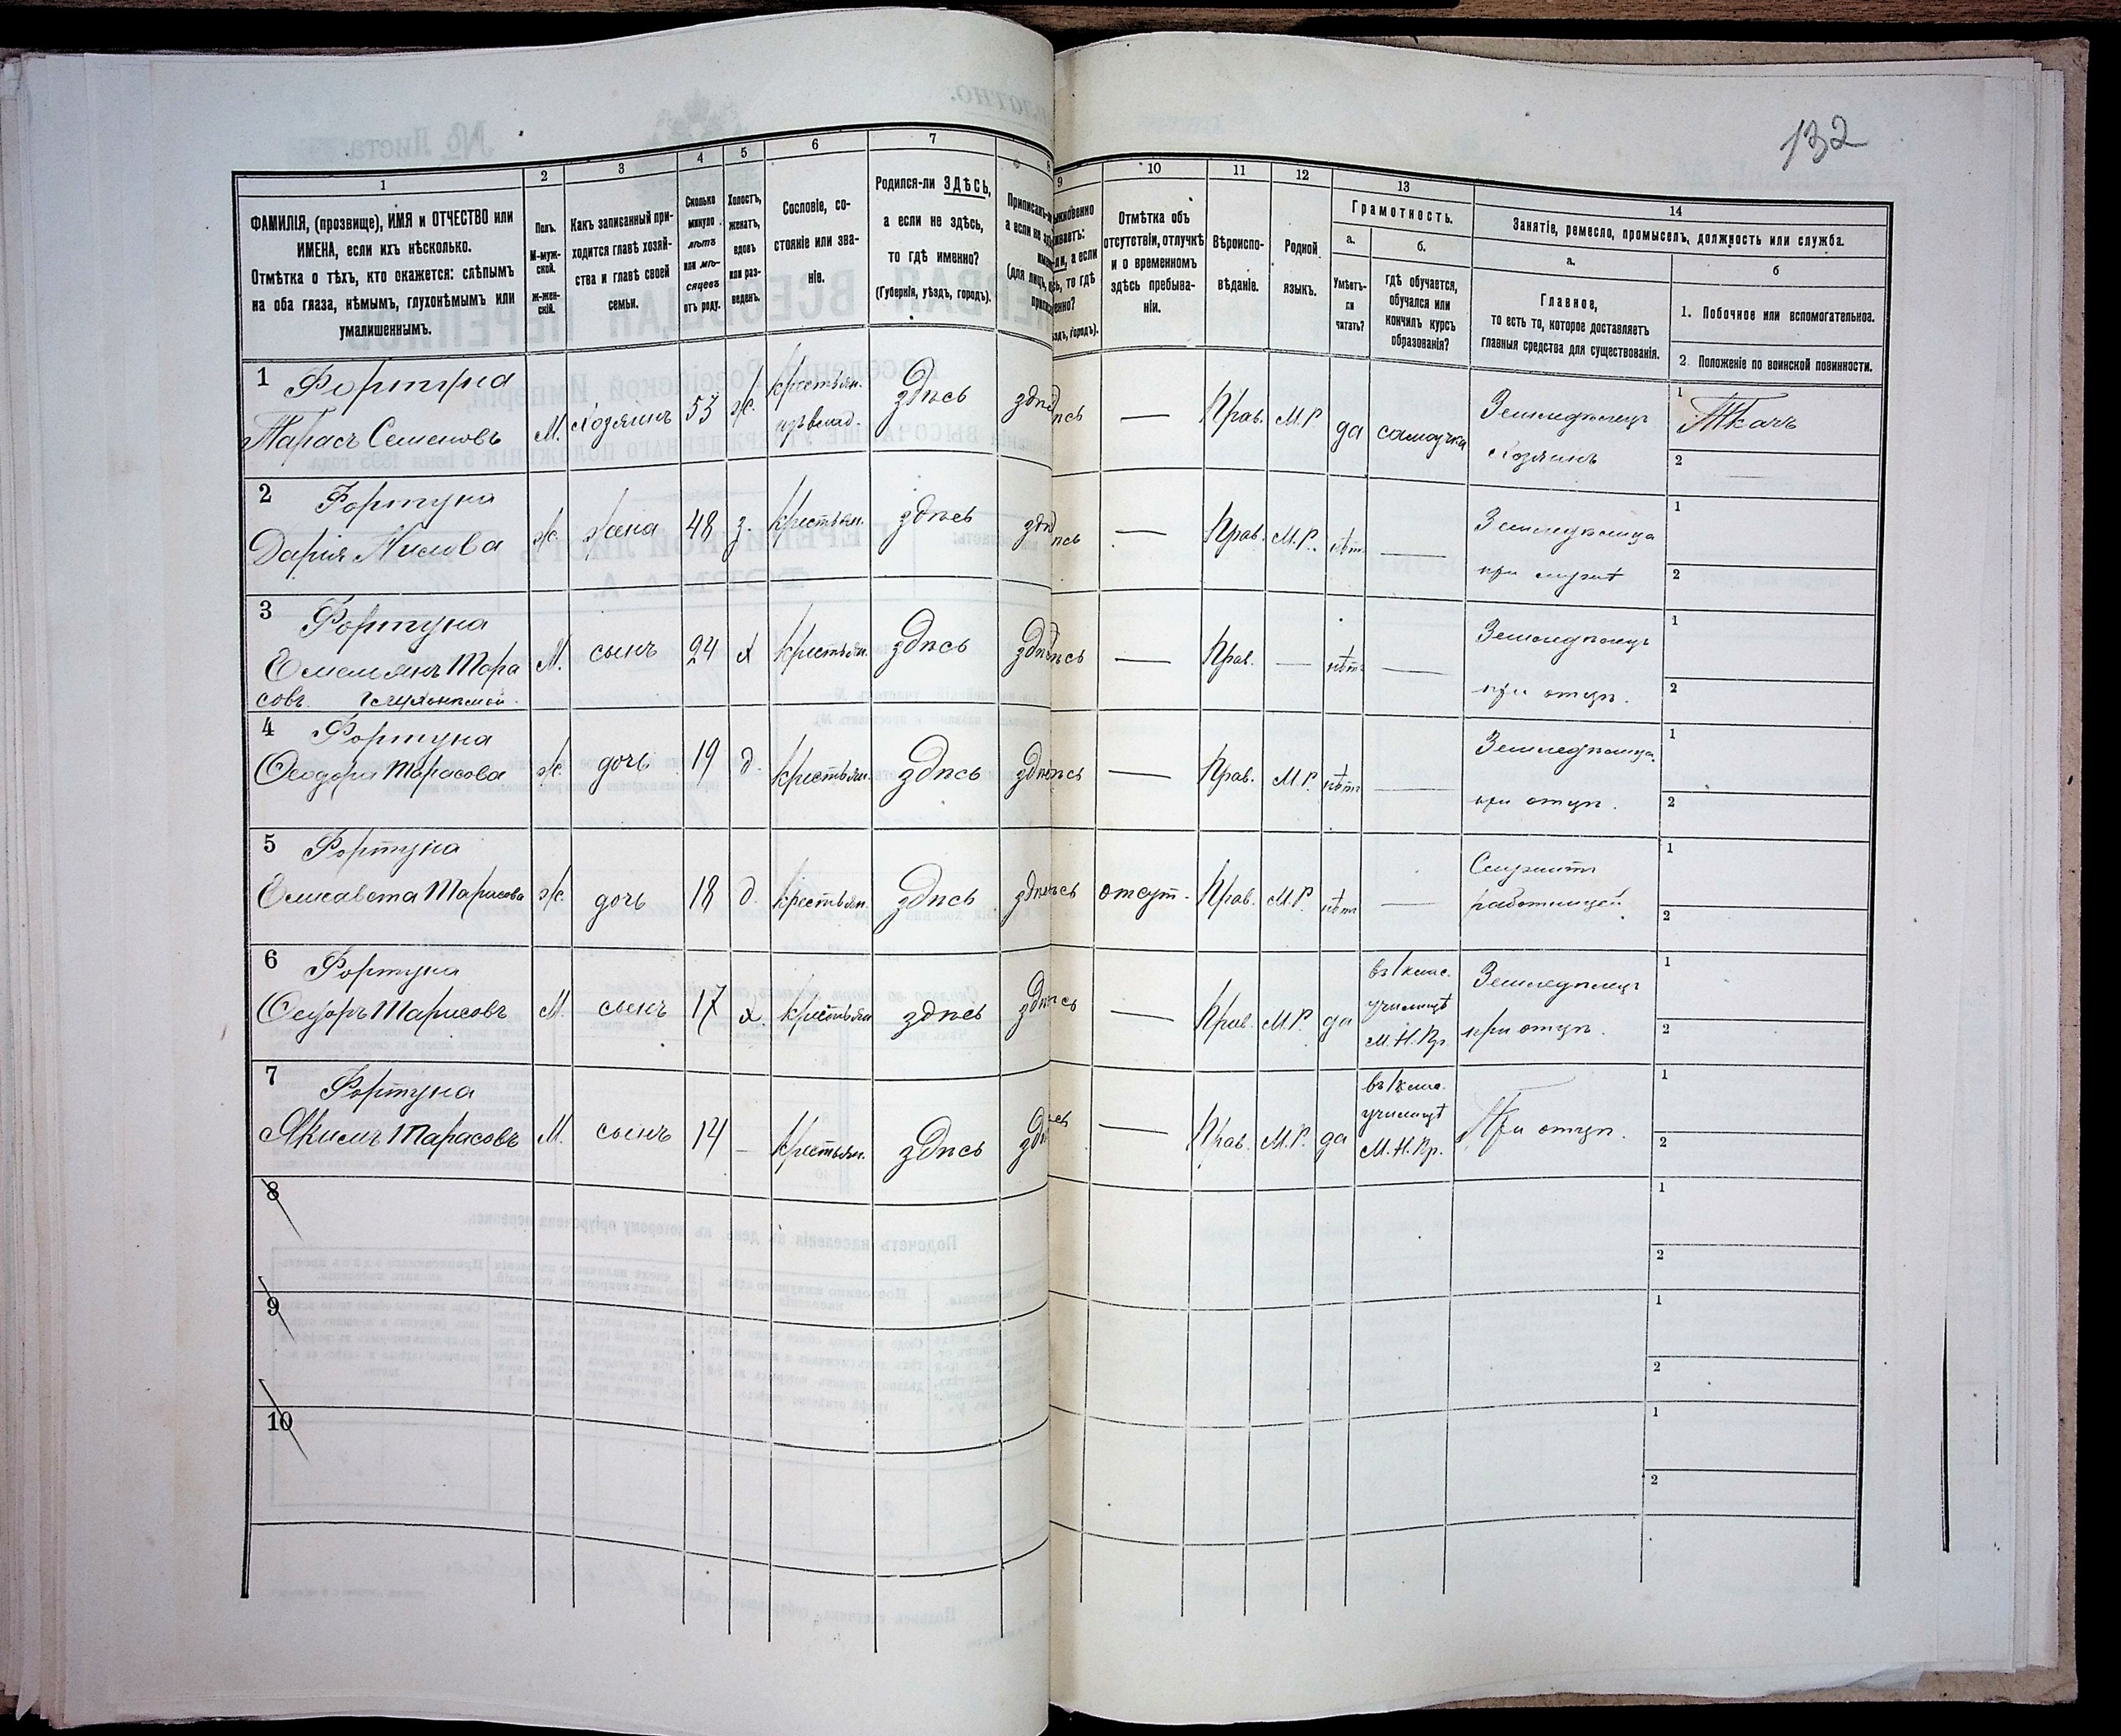 132
1
2
3
4
5
6
7
9
10
11
12
13
14
ФАМИЛІЯ, (прозвище), ИМЯ и ОТЧЕСТВО или
ИМЕНА, если ихъ нѣсколько.
Отмѣтка о тѣхъ, кто окажется: слѣпымъ
на оба глаза, нѣмымъ, глухонѣмымъ или
умалишеннымъ.
Полъ.
М-муж-
ской.
Ж-жен-
скій.
Какъ записанный при-
ходится главѣ хозяй-
ства и главѣ своей
семьи.
Сколько
минуло
лѣтъ
или мѣ-
сяцевъ
отъ роду.
Холостъ,
женатъ,
вдовъ
или раз-
веденъ.
Сословіе, со-
стояніе или зва-
ніе.
Родился-ли ЗДѢСЬ,
а если не здѣсь,
то гдѣ именно?
(Губернія, уѣздъ, городъ).
Отмѣтка объ
отсутствіи, отлучкѣ
и о временномъ
здѣсь пребыва-
ніи.
Вѣроиспо-
вѣданіе.
Родной
языкъ.
Грамотность.
а.
Умѣетъ-
ли
читать?
б.
гдѣ обучается,
обучался или
кончилъ курсъ
образованія?
Занятіе, ремесло, промыселъ, должность или служба.
а.
Главное,
то есть то, которое доставляетъ
главныя средства для существованія.
б
1. Побочное или вспомогательное.
2. Положеніе по воинской повинности.
1 Фортуна
Тарасъ Семеновъ
М. хозяинъ 53 ж. крестьян. здѣсь
Прав. М.Р. да самоучка Земледѣлецъ
хозяинъ
1 Ткачъ
2
2 Фортуна
Дарія
ж. жена 48 з. крестьян. здѣсь
Прав. М.Р. нѣтъ Земледѣлица
при мужѣ
1
2
3 Фортуна
Емельянъ Тара
совъ глухонѣмой
М. сынъ 24 х крестьян. здѣсь
Прав. нѣтъ Земледѣлецъ
при отцѣ.
1
2
4 Фортуна
Ѳеодора Тарасова
ж. дочь 19 д. крестьян. здѣсь
Прав. М.Р. нѣтъ Земледѣлица
при отцѣ.
1
2
5 Фортуна
Елисавета Тарасова
ж. дочь 18 д. крестьян. здѣсь
отсут. Прав. М.Р. нѣтъ Служитъ
работницей
1
2
6 Фортуна
Ѳедоръ Тарасовъ
М. сынъ 17 х. крестьян здѣсь
Прав. М.Р. да въ 1 клас.
училищѣ
М.Н.Пр.
Земледѣлецъ
при отцѣ.
1
2
7 Фортуна
Якимъ Тарасовъ
М. сынъ 14 крестьян. здѣсь
Прав. М.Р. да въ 1 клас.
училищѣ
М.Н.Пр.
При отцѣ.
1
2
8
1
2
9
1
2
10
1
2